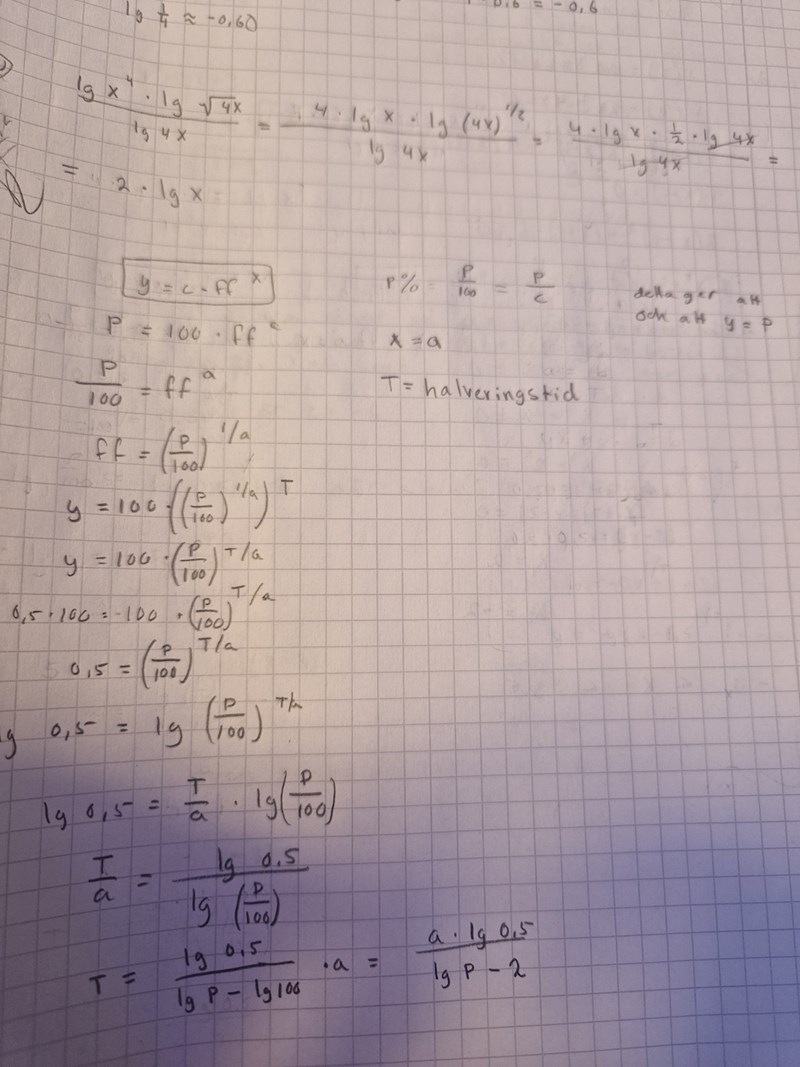 lg 1/4 ≈ -0,60
0,6 = -0,6
(lg x⁴ · lg √4x)/(lg 4x) = (4 · lg x · lg (4x)^1/2)/(lg 4x) = (4 · lg x · 1/2 · lg 4x)/(lg 4x) =
= 2 · lg x
y = c · ff^x
p% p/100 = p/c detta ger att
och att y = p
P = 100 · ff^a
x = a
P/100 = ff^a
T = halveringstid
ff = (P/100)^1/a
y = 100 · ((P/100)^1/a)^T
y = 100 · (P/100)^T/a
0,5 · 100 = 100 · (P/100)^T/a
0,5 = (P/100)^T/a
lg 0,5 = lg (P/100)^T/a
lg 0,5 = T/a · lg(P/100)
T/a = (lg 0,5)/(lg (P/100))
T = (lg 0,5)/(lg P - lg 100) · a = (a · lg 0,5)/(lg P - 2)